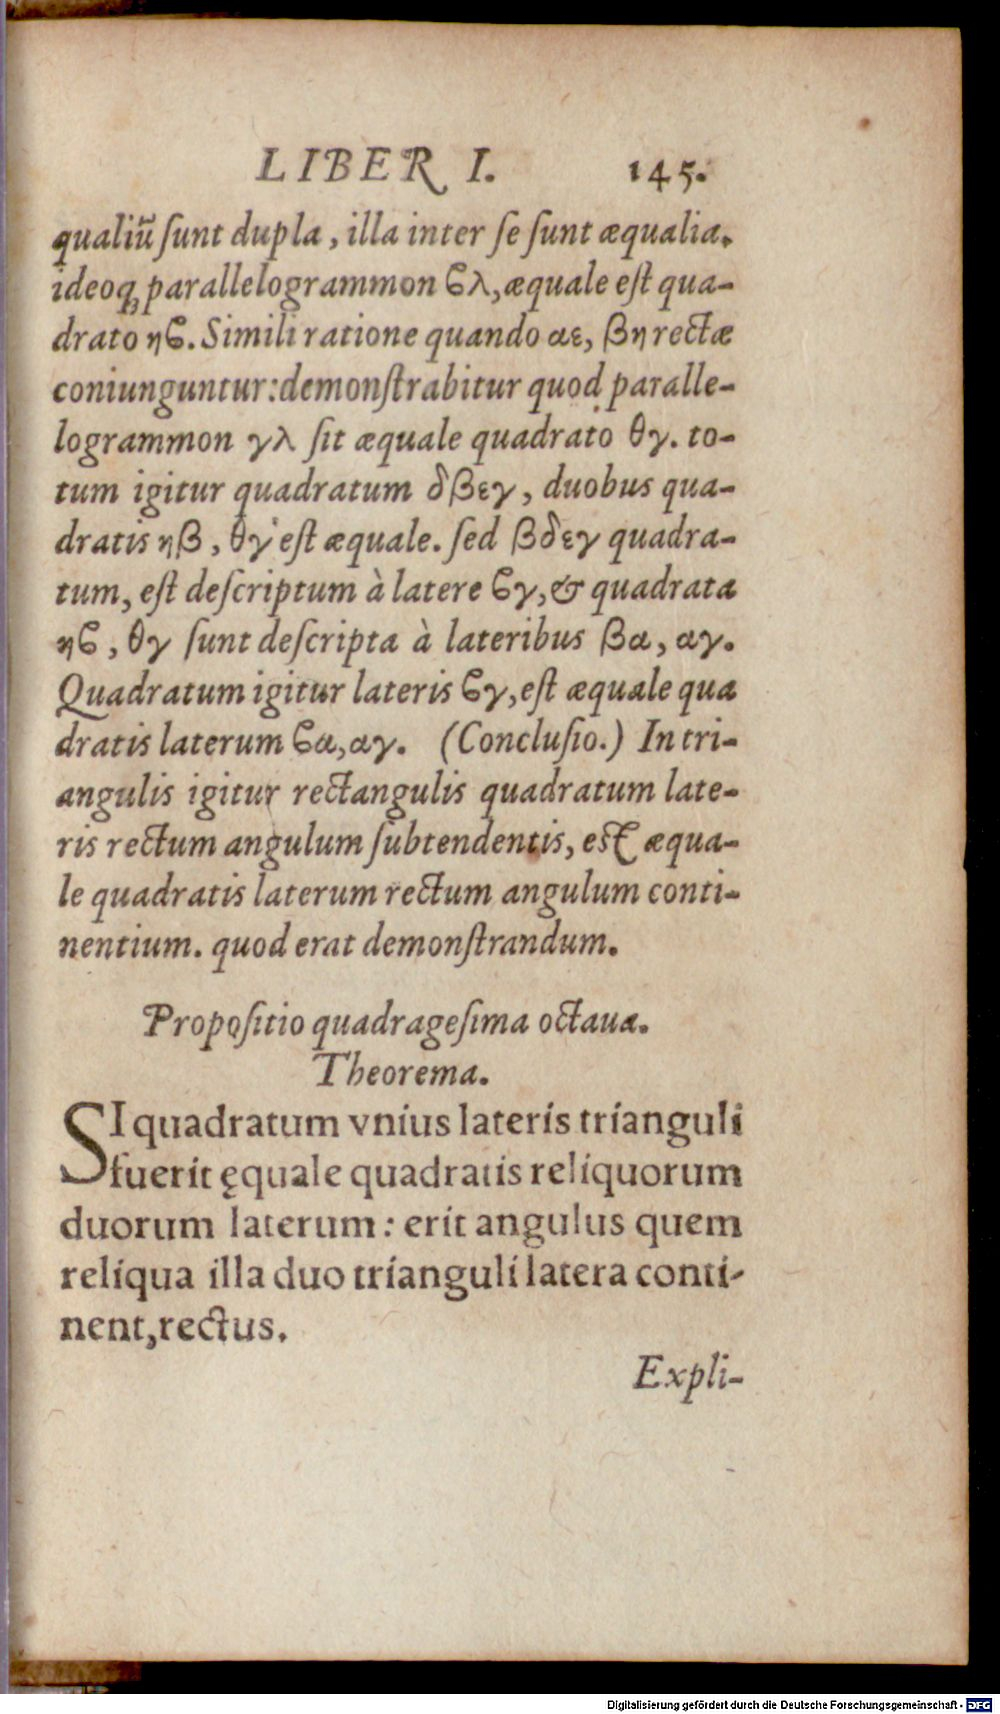 LIBER I. 145.
qualiũ ſunt dupla, illa inter ſe ſunt æqualia.
ideoq́ꝫ parallelogrammon ϐλ, æquale eſt qua-
drato ηϐ. Simili ratione quando αε, βη rectæ
coniunguntur: demonſtrabitur quod paralle-
logrammon γλ ſit æquale quadrato θγ. to-
tum igitur quadratum δβεγ, duobus qua-
dratis ηβ, θγ eſt æquale. ſed βδεγ quadra-
tum, eſt deſcriptum à latere ϐγ, & quadrata
ηϐ, θγ ſunt deſcripta à lateribus βα, αγ.
Quadratum igitur lateris ϐγ, eſt æquale qua
dratis laterum ϐα, αγ. (Concluſio.) In tri-
angulis igitur rectangulis quadratum late-
ris rectum angulum ſubtendentis, est æqua-
le quadratis laterum rectum angulum conti-
nentium. quod erat demonſtrandum.
Propoſitio quadrageſima octaua.
Theorema.
SI quadratum vnius lateris trianguli
fuerit ęquale quadratis reliquorum
duorum laterum: erit angulus quem
reliqua illa duo trianguli latera conti-
nent, rectus.
Expli-
Digitalisierung gefördert durch die Deutsche Forschungsgemeinschaft - DFG